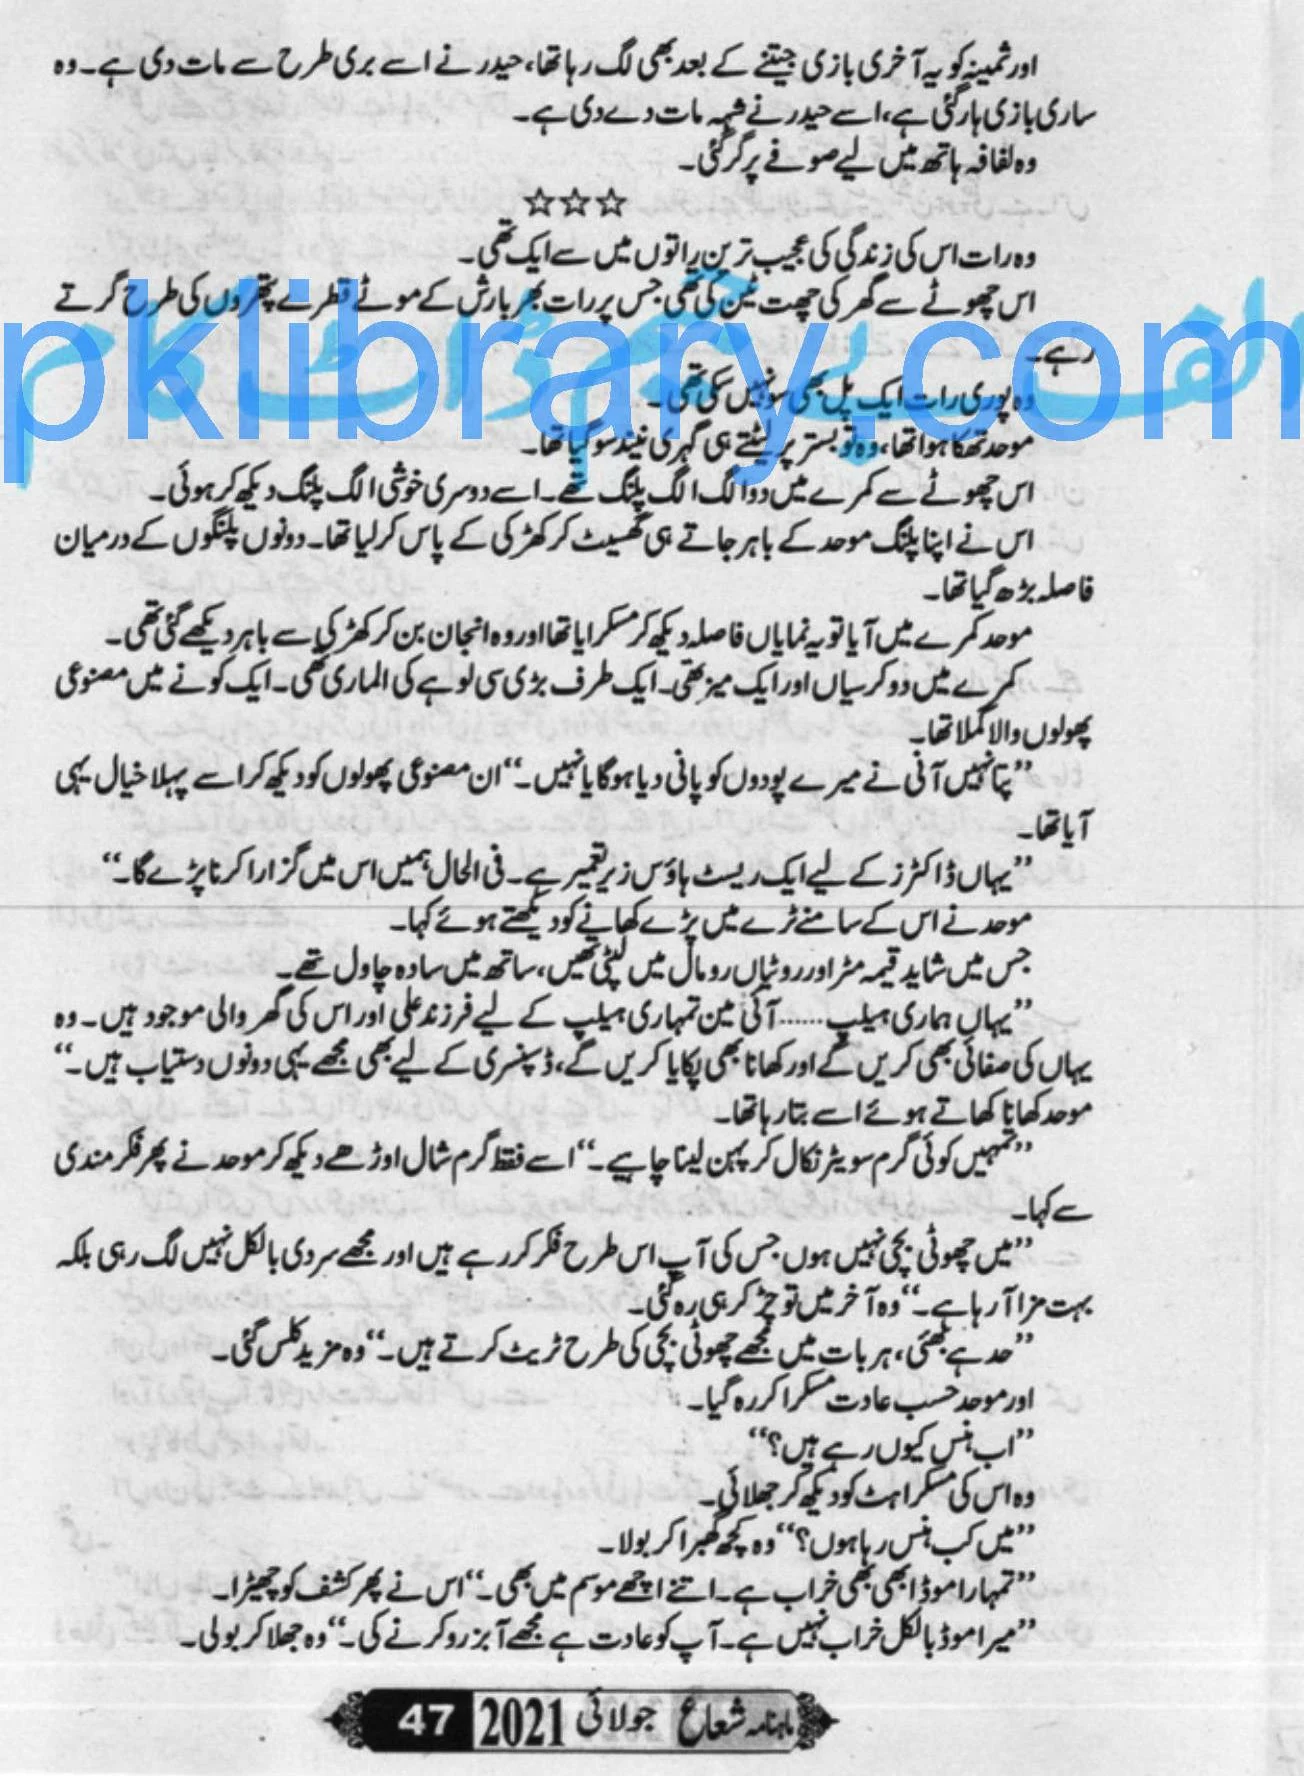 اور ثمینہ کو یہ آخری بازی جیتنے کے بعد بھی لگ رہا تھا، حیدر نے اسے بری طرح سے مات دی ہے۔ وہ
ساری بازی ہار گئی ہے، اسے حیدر نے شہہ مات دے دی ہے۔
وہ لفافہ ہاتھ میں لیے صوفے پر گر گئی۔
☆☆☆
وہ رات اس کی زندگی کی عجیب ترین راتوں میں سے ایک تھی۔
اس چھوٹے سے گھر کی چھت ٹین کی تھی جس پر رات بھر بارش کے موٹے قطرے پتھروں کی طرح گرتے
رہے۔
pklibrary.com
وہ پوری رات ایک پل بھی سو نہیں سکی تھی۔
موحد تھکا ہوا تھا، وہ تو بستر پر لیٹتے ہی گہری نیند سو گیا تھا۔
اس چھوٹے سے کمرے میں دو الگ الگ پلنگ تھے۔ اسے دوسری خوشی الگ پلنگ دیکھ کر ہوئی۔
اس نے اپنا پلنگ موحد کے باہر جاتے ہی گھسیٹ کر کھڑکی کے پاس کر لیا تھا۔ دونوں پلنگوں کے درمیان
فاصلہ بڑھ گیا تھا۔
موحد کمرے میں آیا تو یہ نمایاں فاصلہ دیکھ کر مسکرایا تھا اور وہ انجان بن کر کھڑکی سے باہر دیکھے گئی تھی۔
کمرے میں دو کرسیاں اور ایک میز تھی۔ ایک طرف بڑی سی لوہے کی الماری تھی۔ ایک کونے میں مصنوعی
پھولوں والا گملا تھا۔
”پتا نہیں آنی نے میرے پودوں کو پانی دیا ہوگا یا نہیں۔“ ان مصنوعی پھولوں کو دیکھ کر اسے پہلا خیال یہی
آیا تھا۔
”یہاں ڈاکٹرز کے لیے ایک ریسٹ ہاؤس زیر تعمیر ہے۔ فی الحال ہمیں اس میں گزارا کرنا پڑے گا۔“
موحد نے اس کے سامنے ٹرے میں پڑے کھانے کو دیکھتے ہوئے کہا۔
جس میں شاید قیمہ مٹر اور روٹیاں رومال میں لپٹی تھیں، ساتھ میں سادہ چاول تھے۔
”یہاں ہماری ہیلپ...... آئی مین تمہاری ہیلپ کے لیے فرزند علی اور اس کی گھر والی موجود ہیں۔ وہ
یہاں کی صفائی بھی کریں گے اور کھانا بھی پکایا کریں گے، ڈسپنسری کے لیے بھی مجھے یہی دونوں دستیاب ہیں۔“
موحد کھانا کھاتے ہوئے اسے بتا رہا تھا۔
”تمہیں کوئی گرم سویٹر نکال کر پہن لینا چاہیے۔“ اسے فقط گرم شال اوڑھے دیکھ کر موحد نے پھر فکر مندی
سے کہا۔
”میں چھوٹی بچی نہیں ہوں جس کی آپ اس طرح فکر کر رہے ہیں اور مجھے سردی بالکل نہیں لگ رہی بلکہ
بہت مزا آ رہا ہے۔“ وہ آخر میں تو چڑ کر ہی رہ گئی۔
”حد ہے بھئی، ہر بات میں مجھے چھوٹی بچی کی طرح ٹریٹ کرتے ہیں۔“ وہ مزید کلس گئی۔
اور موحد حسب عادت مسکرا کر رہ گیا۔
”اب ہنس کیوں رہے ہیں؟“
وہ اس کی مسکراہٹ کو دیکھ کر جھلائی۔
”میں کب ہنس رہا ہوں؟“ وہ کچھ گھبرا کر بولا۔
”تمہارا موڈ ابھی بھی خراب ہے۔ اتنے اچھے موسم میں بھی۔“ اس نے پھر کشف کو چھیڑا۔
”میرا موڈ بالکل خراب نہیں ہے۔ آپ کو عادت ہے مجھے آبزرو کرنے کی۔“ وہ جھلا کر بولی۔
ماہنامہ شعاع جولائی 2021 47